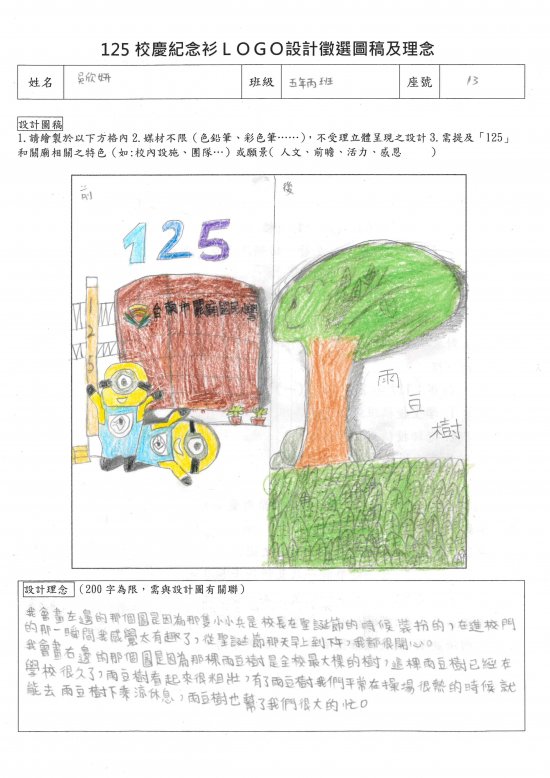 125 校慶紀念衫ＬＯＧＯ設計徵選圖稿及理念
姓名 吳欣妍 班級 五年丙班 座號 13
設計圖稿
1.請繪製於以下方格內 2.媒材不限（色鉛筆、彩色筆……），不受理立體呈現之設計 3.需提及「125」
和關廟相關之特色（如:校內設施、團隊…）或願景( 人文、前瞻、活力、感恩 )
前
後
125
台南市關廟國民小學
125
雨豆樹
設計理念 (200 字為限，需與設計圖有關聯)
我會畫左邊的那個圖是因為那隻小小兵是校長在聖誕節的時候裝扮的，在進校門
的那一瞬間我感覺太有趣了，從聖誕節那天早上到下午，我都很開心。
我會畫右邊的那個圖是因為那棵雨豆樹是全校最大棵的樹，這棵雨豆樹已經在
學校很久了，雨豆樹看起來很粗壯，有了雨豆樹我們平常在操場很熱的時候就
能去雨豆樹下乘涼休息，雨豆樹也幫了我們很大的忙。